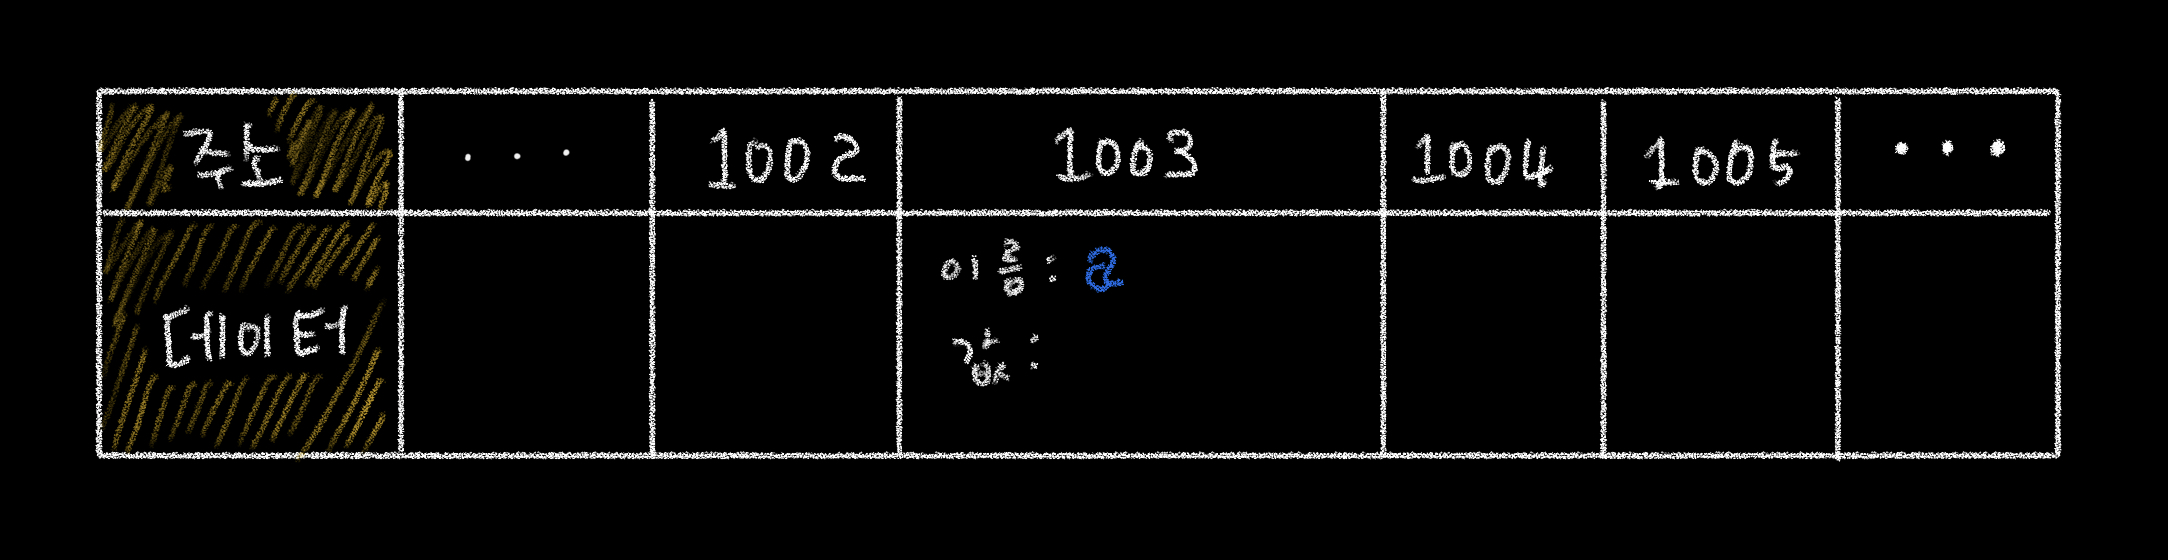 주소 ... 1002 1003 1004 1005 ...
데이터
이름 : a
값 :